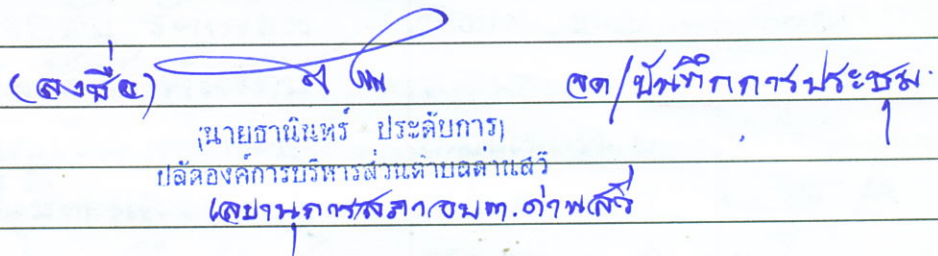 (ลงชื่อ) จด/บันทึกการประชุม
(นายธานินทร์ ประดับการ)
ปลัดองค์การบริหารส่วนตำบลด่านสวี
เลขานุการสภาอบต.ด่านสวี